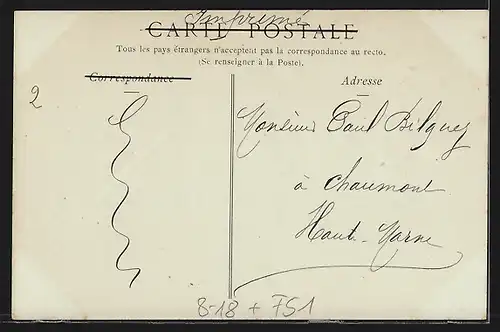 Imprimé
CARTE POSTALE
Tous les pays étrangers n'acceptent pas la correspondance au recto.
(Se renseigner à la Poste).
Correspondance
Adresse
2
Monsieur Paul Bilguez
à Chaumont
Haute-Marne
8-18 + FS1